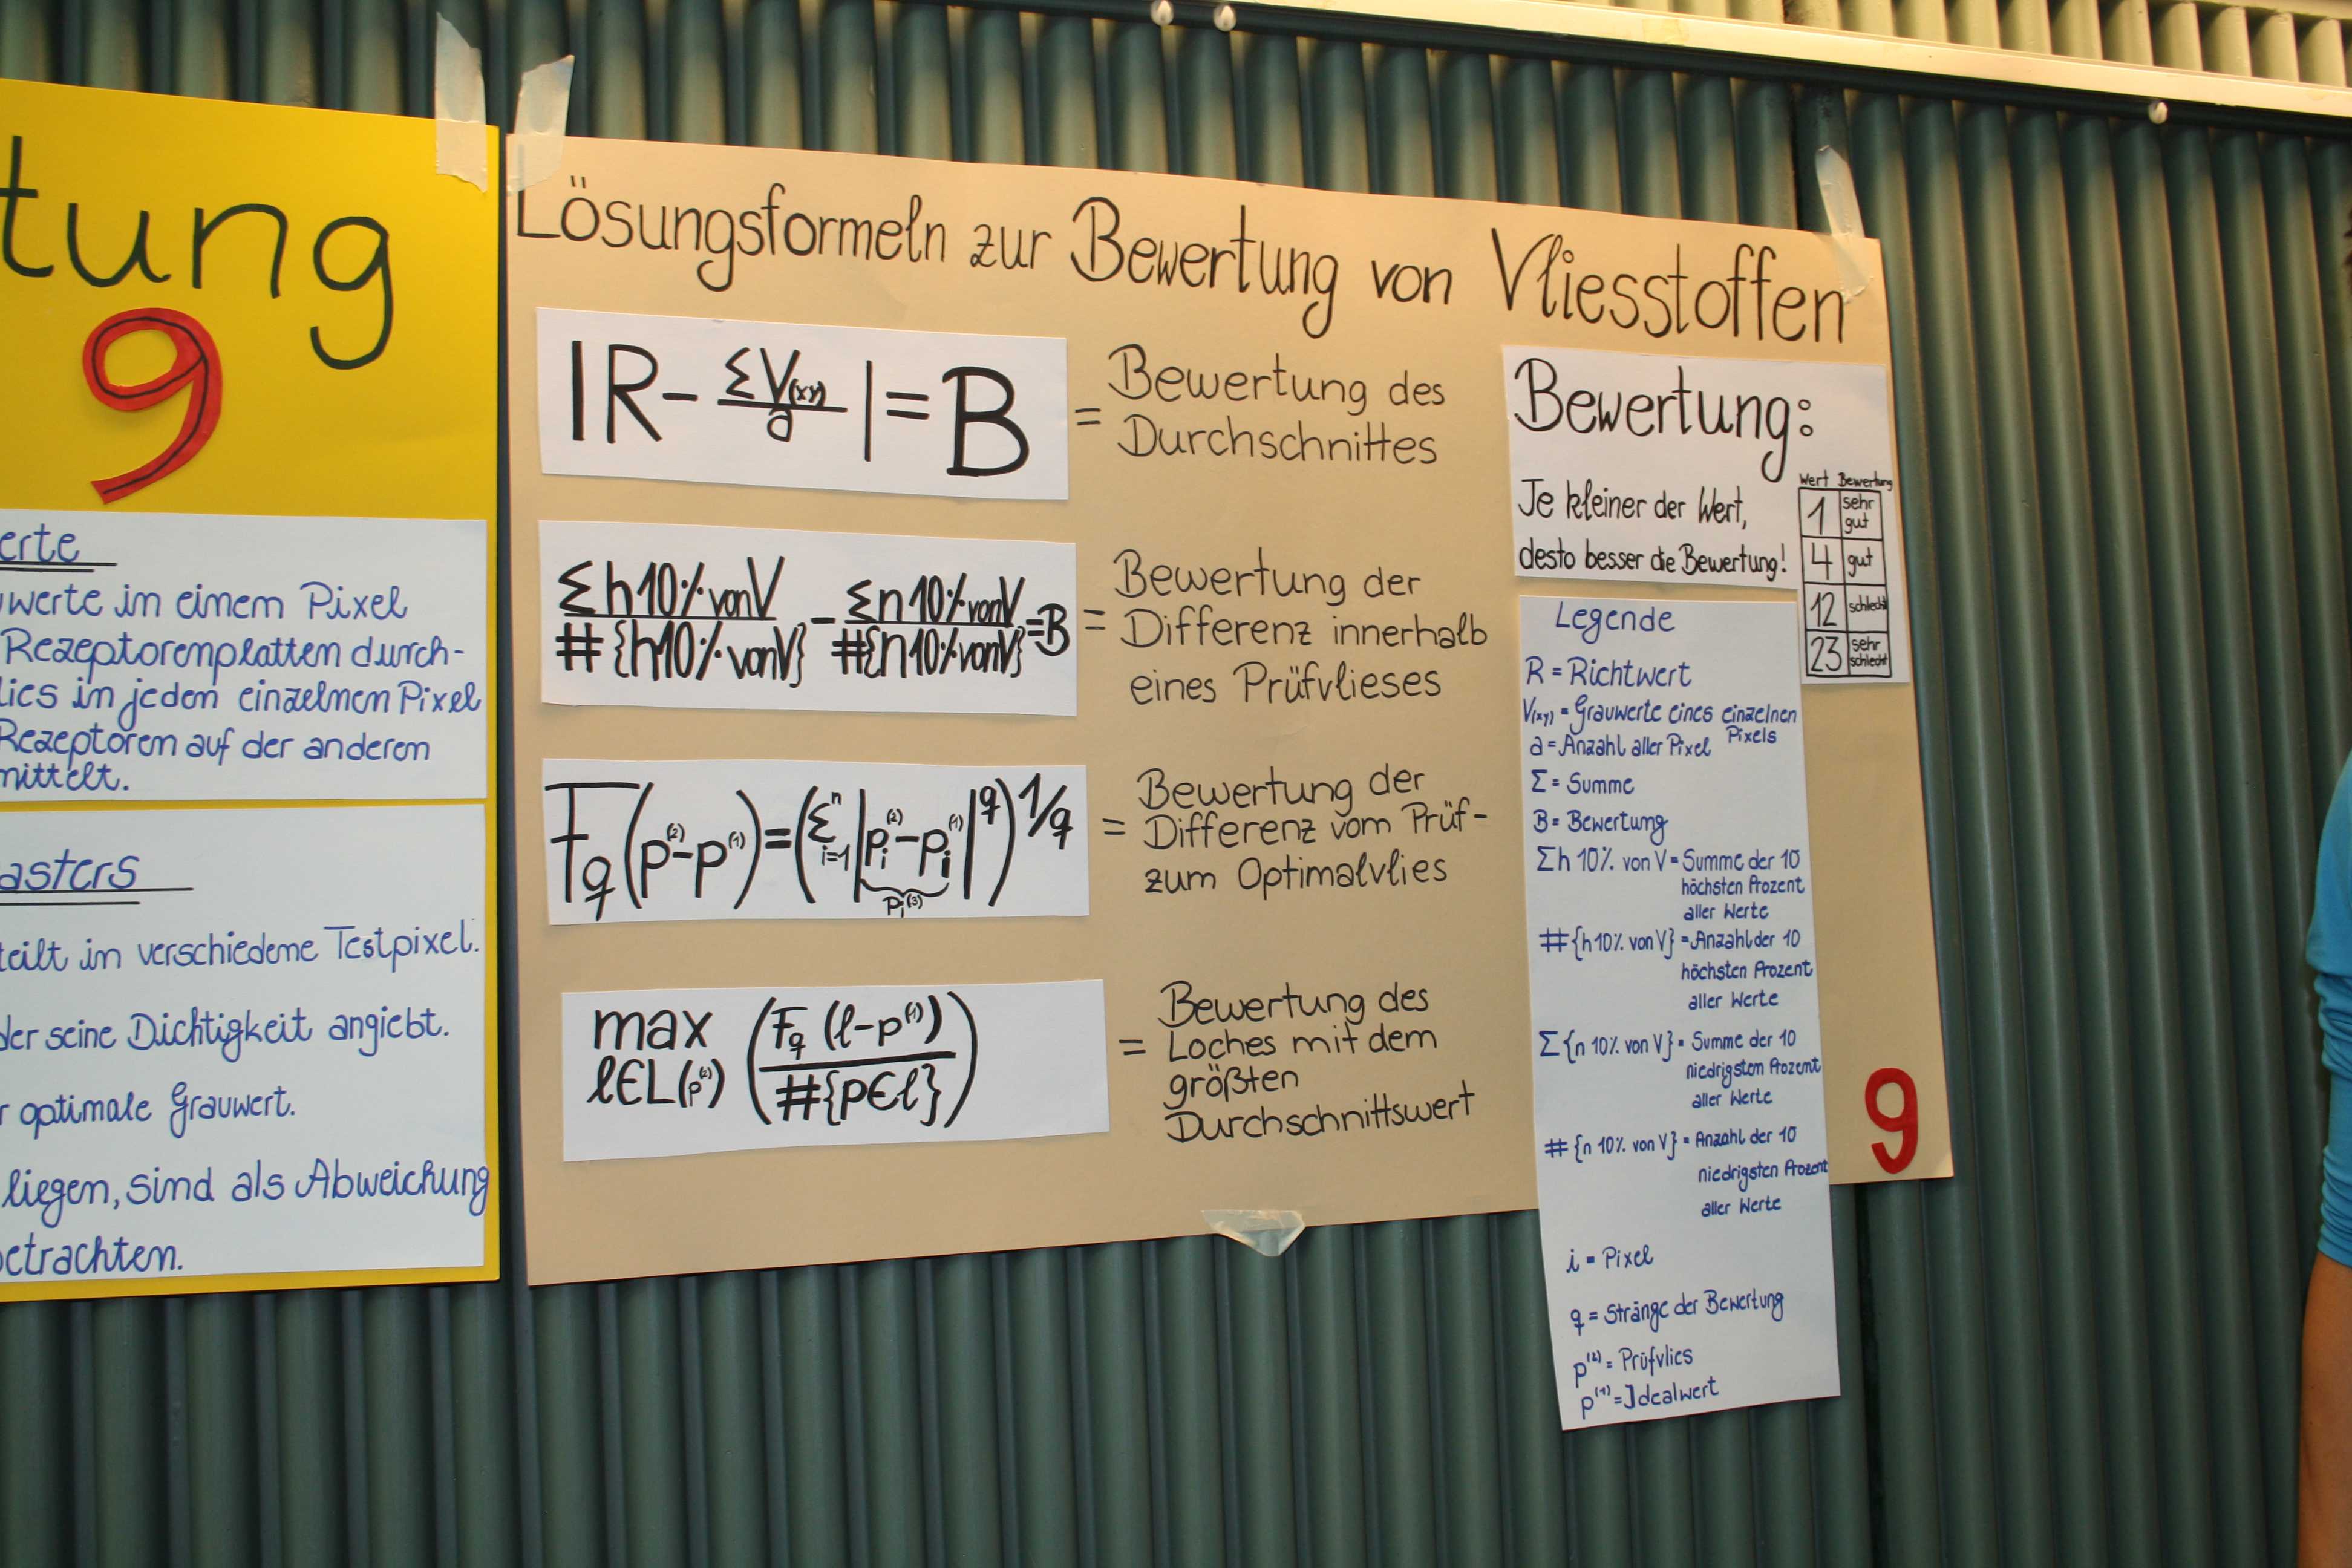 tung
9
erte
werte im einem Pixel
Rezeptorenplatten durch-
lies in jedem einzelnen Pixel
Rezeptoren auf der anderen
mittelt.
asters
teilt in verschiedene Testpixel.
der seine Dichtigkeit angiebt.
r optimale Grauwert.
liegen, sind als Abweichung
betrachten.
Lösungsformeln zur Bewertung von Vliesstoffen
|R - ΣV(xy) / a | = B
= Bewertung des
Durchschnittes
Σh10%vonV / #{h10%vonV} - Σn10%vonV / #{n10%vonV} = B
= Bewertung der
Differenz innerhalb
eines Prüfvlieses
Fq(p⁽²⁾-p⁽¹⁾)=(Σⁿi=1|pi⁽²⁾-pi⁽¹⁾|^q)^1/q
Pi⁽³⁾
= Bewertung der
Differenz vom Prüf-
zum Optimalvlies
max l∈L(p⁽²⁾) (Fq (l-p⁽¹⁾) / #{p∈l})
= Bewertung des
Loches mit dem
größten
Durchschnittswert
Bewertung:
Je kleiner der Wert,
desto besser die Bewertung!
Wert Bewertung
1 sehr gut
4 gut
12 schlecht
23 sehr schlecht
Legende
R = Richtwert
V(xy) = Grauwerte eines einzelnen
Pixels
a = Anzahl aller Pixel
Σ = Summe
B = Bewertung
Σh 10% von V = Summe der 10
höchsten Prozent
aller Werte
#{h10% von V} = Anzahl der 10
höchsten Prozent
aller Werte
Σ{n 10% von V} = Summe der 10
niedrigstem Prozent
aller Werte
#{n 10% von V} = Anzahl der 10
niedrigsten Prozent
aller Werte
i = Pixel
q = Stränge der Bewertung
p⁽²⁾ = Prüfvlies
p⁽¹⁾ = Idealwert
9